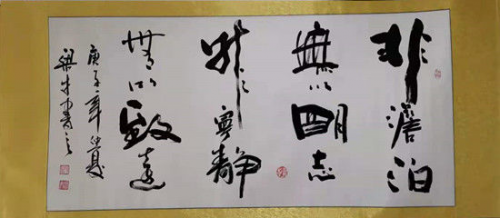 非澹泊
無以明志
非寧靜
無以致遠
庚子年仲夏
梁牛書之